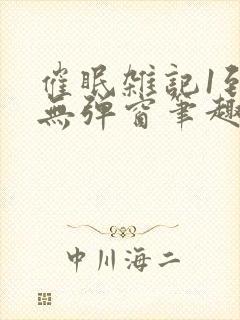 催眠雑記1到
無弹窗笔趣
中川海二